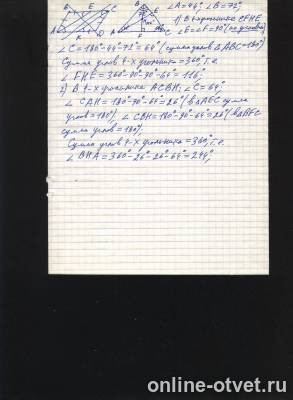 B E C
B
∠A=44°, ∠B=72°
1) В 4-хугольнике CFHE,
∠E=∠F=90° (по условию)
∠C=180°-44°-72°=64° (сумма углов ΔABC=180°)
Сумма углов 4-х угольника=360°, т.е.
∠FHE=360°-90°-90°-64°=116°;
2) В 4-х угольнике ACBH; ∠C=64°;
∠CAH=180°-90°-64°=26° (в ΔAEC сумма
углов=180°), ∠CBH=180°-90°-64°=26° (в ΔBFC
сумма углов=180°).
Сумма углов 4-х угольника=360°, т.е.
∠BHA=360°-26°-26°-64°=244°;
online-otvet.ru